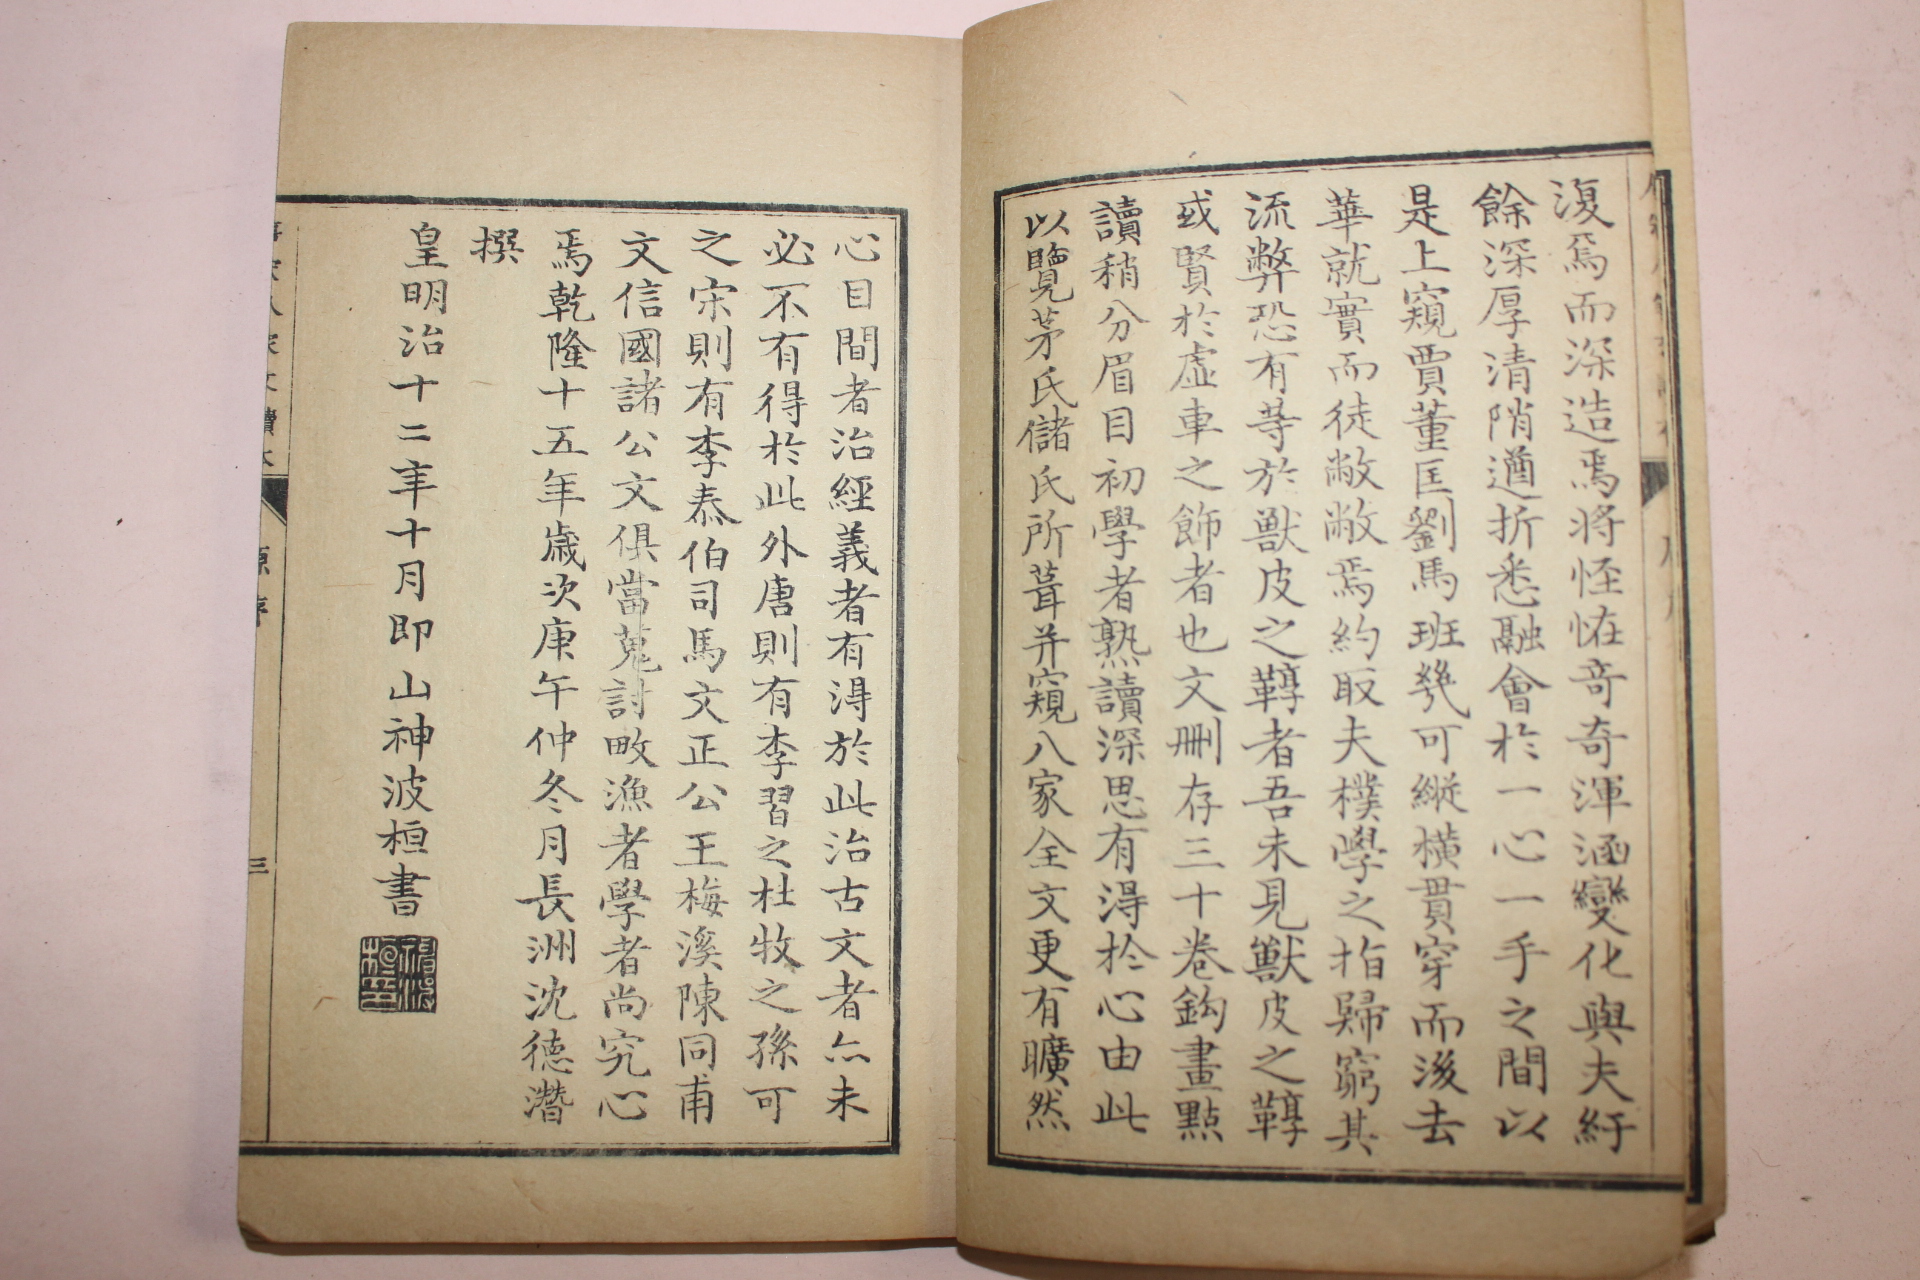 復焉而深造焉將怪怪奇奇渾涵變化與夫紆
餘深厚清陗遒折悉融會於一心一手之間以
是上窺賈董匡劉馬班幾可縱橫貫穿而後去
華就實而徒敝敝焉約取夫樸學之指歸窮其
流弊恐有等於獸皮之鞟者吾未見獸皮之鞟
或賢於虛車之飾者也文刪存三十卷鈎畫點
讀稍分眉目初學者熟讀深思有得於心由此
以覽茅氏儲氏所葺并窺八家全文更有曠然
心目間者治經義者有得於此治古文者亦未
必不有得於此外唐則有李習之杜牧之孫可
之宋則有李泰伯司馬文正公王梅溪陳同甫
文信國諸公文俱當蒐討畋漁者學者尚究心
焉乾隆十五年歲次庚午仲冬月長洲沈德潛
撰
皇明治十二年十月即山神波桓書
原序
三